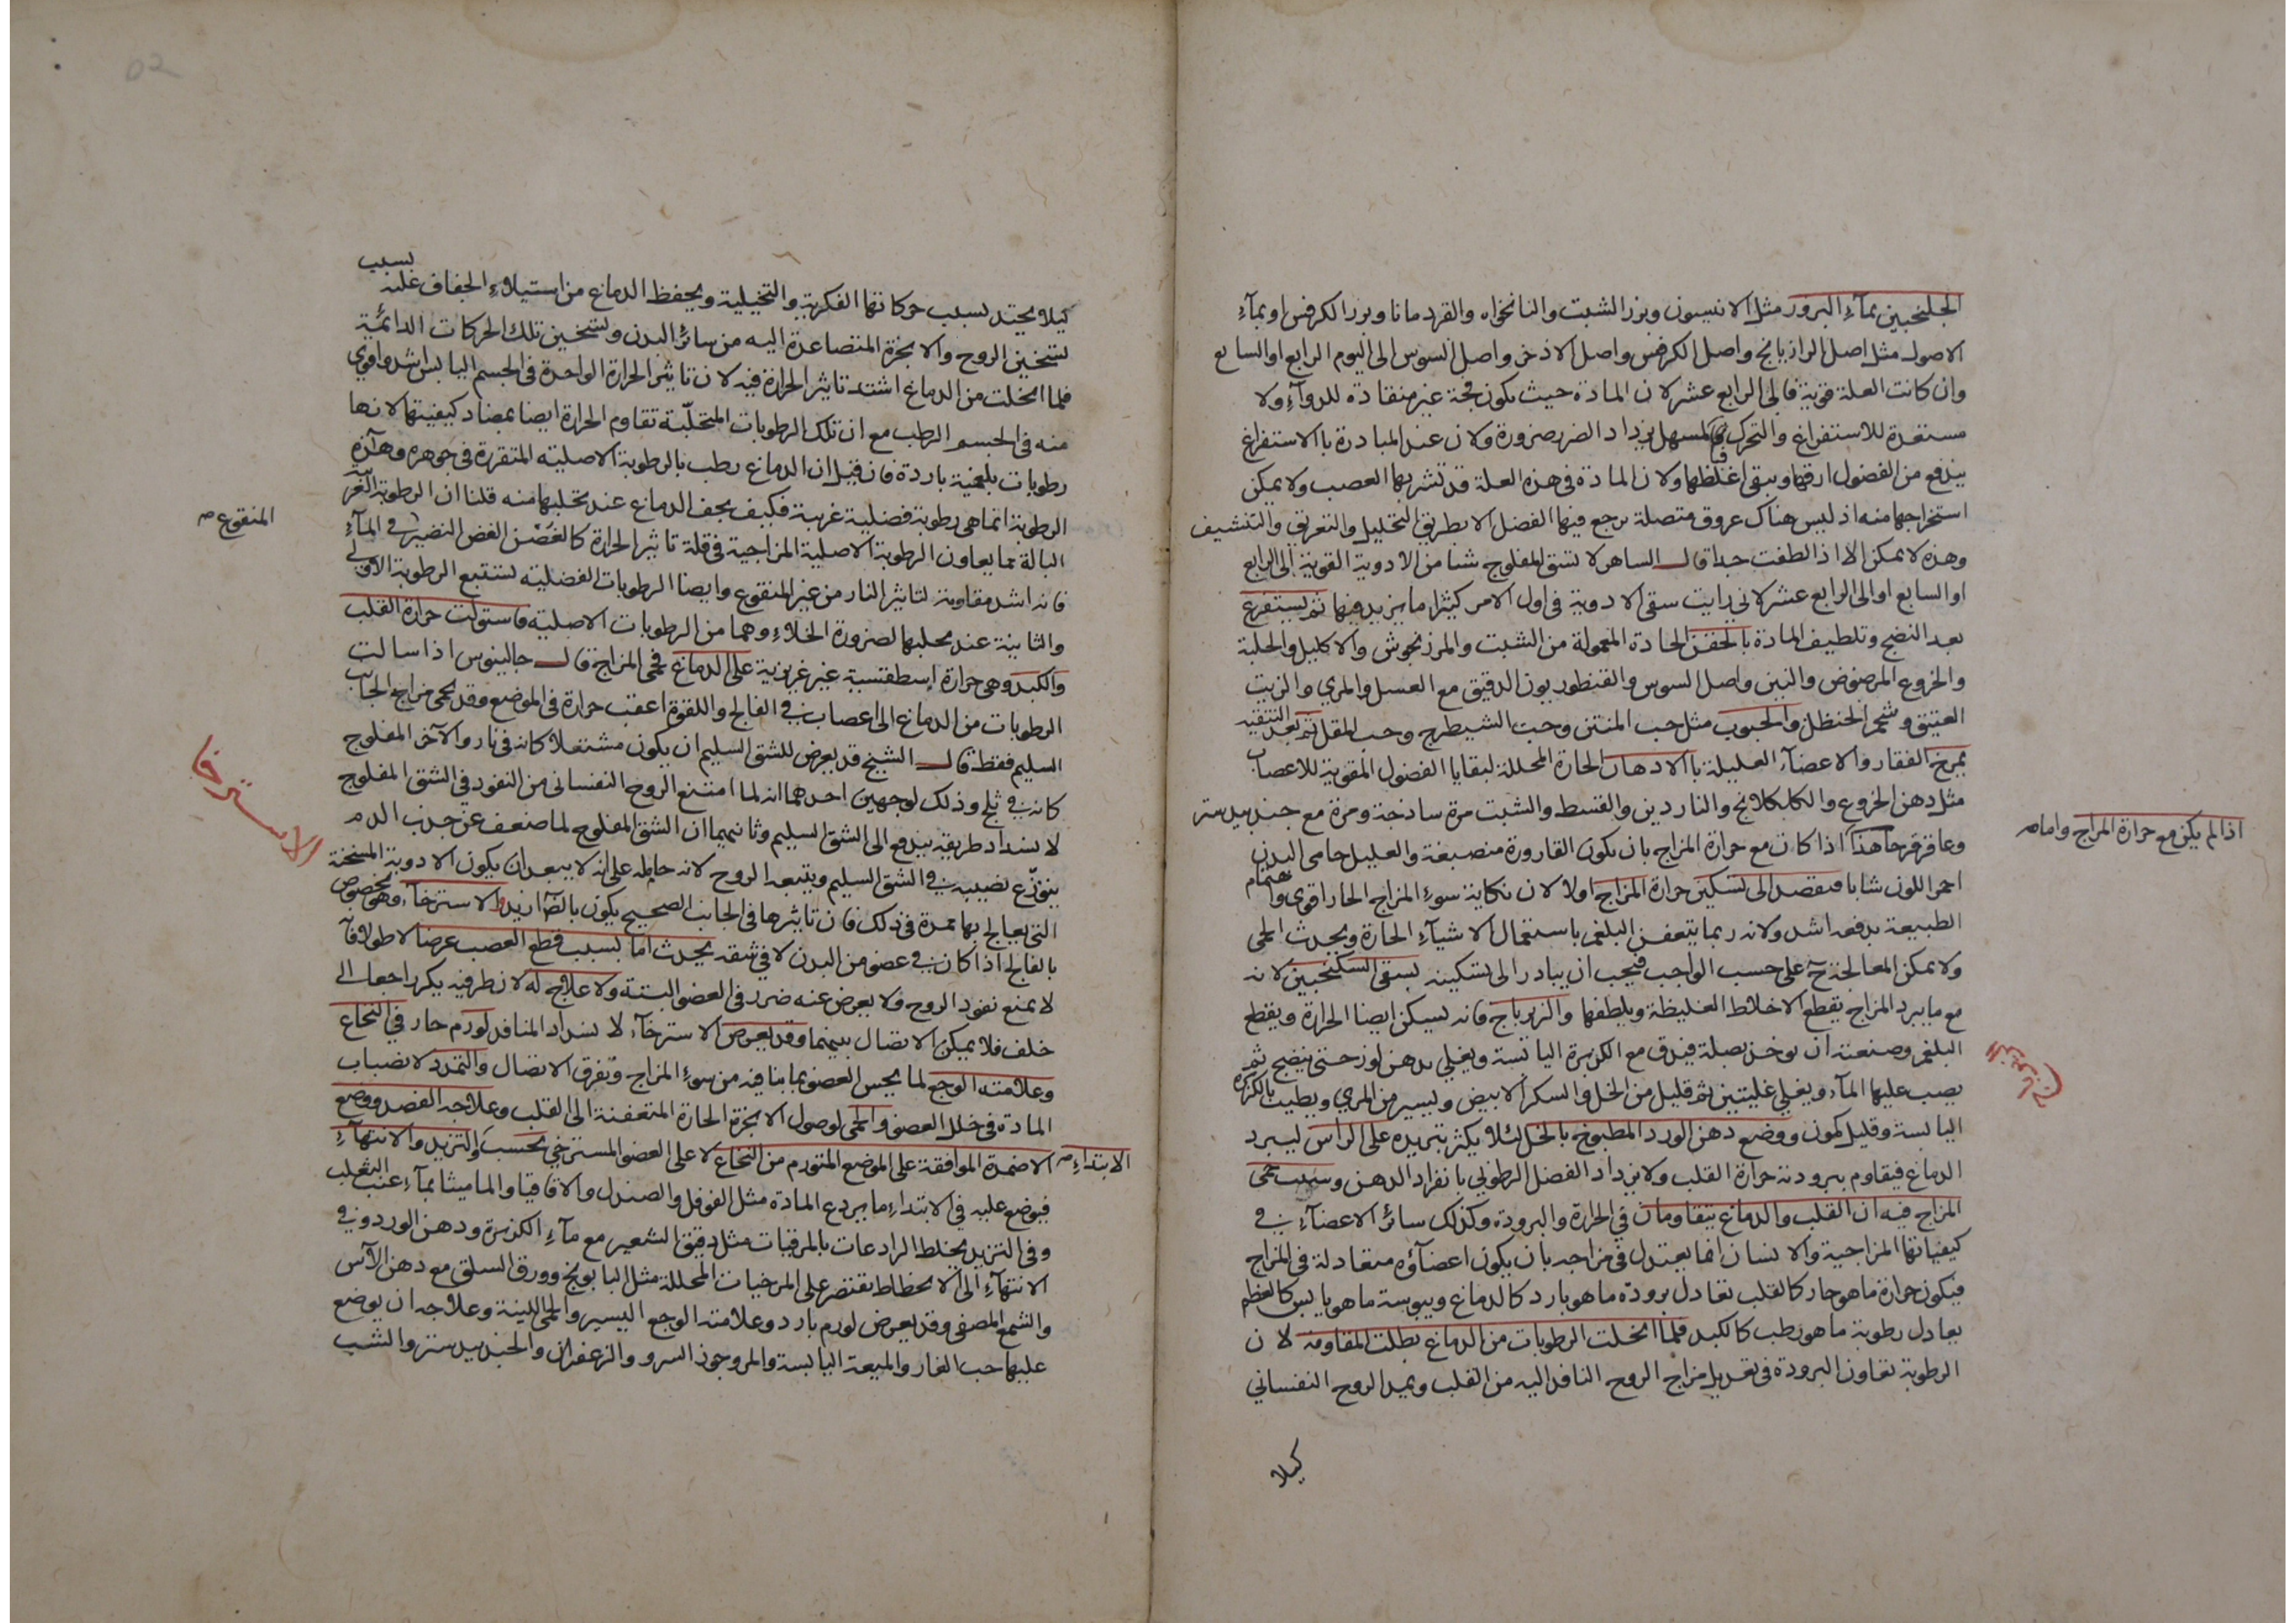 الجلنجبين بمآءِ البزور مثل الانيسون وبزر الشبت والنانخواه والقردمانا وبزر الكرفس او بمآءِ
الاصول مثل اصل الرازيانج واصل الكرفس واصل الاذخر واصل السوس الى اليوم الرابع او السابع
وان كانت العلة قوية فالى الرابع عشر لان المادة حيث يكون فجة غير منقادة للدوآءِ ولا
مستعدة للاستفراغ والتحرك بالمسهل يزداد الضرر ضرورة ولان عند المبادرة بالاستفراغ
يندفع من الفضول ارقها ويبقى اغلظها ولان المادة في هذه العلة قد تشربها العصب ولا يمكن
استخراجها منه اذ ليس هناك عروق متصلة يرجع فيها الفضل الا بطريق التحليل والتعريق والتنشيف
وهذه لا يمكن الا اذا لطفت جدا قال الساهر لا تسق المفلوج شيا من الادوية القوية الى الرابع
او السابع او الى الرابع عشر لاني رايت سقى الادوية في اول الامر كثيرا ما يزيد فيها ثم يستفرغ
بعد النضج وتلطيف المادة بالحقن الحادة المعمولة من الشبت والمرزنجوش والاكليل والحلبة
والخروع المرضوض والتين واصل السوس والقنطوريون الدقيق مع العسل والمري والزيت
العتيق وشحم الحنظل والحبوب مثل حب المنتن وحب الشيطرج وحب المقل ثم بعد التنقية
يمرخ الفقار والاعضآء العليلة بالادهان الحارة المحللة لبقايا الفضول المقوية للاعصاب
مثل دهن الخروع والكلكلانج والناردين والقسط والشبت مرة ساذجة ومرة مع جندبيدستر
وعاقرقرحا هذا اذا كان مع حرارة المزاج بان يكون القارورة منصبغة والعليل حامى البدن
اذا لم يكن مع حرارة المزاج واما
احمر اللون شابا فيقصد الى تسكين حرارة المزاج اولا لان نكاية سوءِ المزاج الحار اقوى واهتمام
الطبيعة بدفعه اشد ولانه ربما يتعفن البلغم باستعمال الاشيآءِ الحارة ويحدث الحمى
ولا يمكن المعالجة ح على حسب الواجب فيجب ان يبادر الى تسكينه بسقى السكنجبين لانه
مع ما يبرد المزاج يقطع الاخلاط الغليظة ويلطفها والزيرباج فانه يسكن ايضا الحرارة ويقطع
البلغم وصنعته ان يوخذ بصلة فيدق مع الكزبرة اليابسة ويغلي بدهن لوز حتى ينضج ثم
يصب عليها المآء ويغلي غليتين ثم قليل من الخل والسكر الابيض ويسير من المري ويطيب بالكزبرة
اليابسة وقليل كمون ووضع دهن الورد المطبوخ بالخل لئلا يكثر تبريده على الراس ليبرد
الدماغ فيقاوم ببرودته حرارة القلب ولا يزداد الفضل الرطوبي بانفراد الدهن وسبب حمى
المزاج فيه ان القلب والدماغ يتقاومان في الحرارة والبرودة وكذلك سائر الاعضآءِ في
كيفياتها المزاجية والانسان انما يعتدل في مزاجه بان يكون اعضآؤه متعادلة في المزاج
فيكون حرارة ما هو حار كالقلب تعادل برودة ما هو بارد كالدماغ ويبوسة ما هو يابس كالعظم
يعادل رطوبة ما هو رطب كالكبد فلما انحلت الرطوبات من الدماغ بطلت المقاومة لان
الرطوبة تعاون البرودة في تعديل مزاج الروح النافذ اليه من القلب ويميل الروح النفساني
كيلا
كيلا يحتد بسبب حركاتها الفكرية والتخيلية ويحفظ الدماغ من استيلاءِ الجفاف عليه بسبب
تسخين الروح والابخرة المتصاعدة اليه من سائر البدن وتسخين تلك الحركات الدائمة
فلما انحلت من الدماغ اشتد تاثير الحرارة فيه لان تاثير الحرارة الواحدة في الجسم اليابس اشد واقوى
منه في الجسم الرطب مع ان تلك الرطوبات المتحلبة تقاوم الحرارة ايضا بمضاد كيفيتها لانها
رطوبات بلغمية باردة فان قيل ان الدماغ رطب بالرطوبة الاصلية المتقررة في جوهره وهذه
الرطوبة انما هي رطوبة فضلية غريبة فكيف يجف الدماغ عند تحلبها منه قلنا ان الرطوبة الغريبة
البالة مما يعاون الرطوبة الاصلية المزاجية في قلة تاثير الحرارة كالغصن الغض النضير في المآءِ
المنقوع
فانه اشد مقاومة لتاثير النار من غير المنقوع وايضا الرطوبات الفضلية تستتبع الرطوبة الاولى
والثانية عند تحلبها لضرورة الخلاءِ وهما من الرطوبات الاصلية فاستولت حرارة القلب
والكبد وهي حرارة اسطقسية غير غريزية على الدماغ فحمى المزاج قال جالينوس اذا سالت
الرطوبات من الدماغ الى اعصاب في الفالج واللقوة اعقب حرارة في الموضع وقد يحمى مزاج الجانب
السليم فقط قال الشيخ قد يعرض للشق السليم ان يكون مشتعلا كانه في نار والآخر المفلوج
كانه في ثلج وذلك لوجهين احدهما انه لما امتنع الروح النفساني من النفوذ في الشق المفلوج
لانسداد طريقه يندفع الى الشق السليم وثانيهما ان الشق المفلوج لما ضعف عن جذب الدم
يتوزع نصيبه في الشق السليم ويتبعه الروح لانه حامله على انه لا يبعد ان يكون الادوية المسخنة
الاسترخا
التي يعالج بها ممدة في ذلك فان تاثيرها في الجانب الصحيح يكون والاسترخآء وهو مخصوص
بالفالج اذا كان في عضو من البدن لا في شقه يحدث اما بسبب قطع العصب عرضا لا طولا فا
لا يمنع نفوذ الروح ولا يعرض عنه ضرر في العضو البتة ولا علاج له لان طرفيه يكر راجعا الى
خلف فلا يمكن الاتصال بينهما وقد يعرض الاسترخآء لانسداد المنافذ لورم حار في النخاع
وعلامته الوجع لما يحس العضو بما ينافيه من سوءِ المزاج وتفرق الاتصال والتمدد لانصباب
المادة في خلل العضو والحمى لوصول الابخرة الحارة المتعفنة الى القلب وعلاجه الفصد ووضع
الاضمدة الموافقة على الموضع المتورم من النخاع لا على العضو المسترخي بحسب والتزيد والانتهآءِ
الابتداءِ
فيوضع عليه في الابتداءِ ما يردع المادة مثل الفوفل والصندل والاقاقيا والماميثا بمآءِ عنب الثعلب
وفي التزيد يخلط الرادعات بالمرخيات مثل دقيق الشعير مع مآءِ الكزبرة ودهن الورد وفي
الانتهآءِ الى الانحطاط يقتصر على المرخيات المحللة مثل البابونج وورق السلق مع دهن الآس
والشمع المصفى وقد يعرض لورم بارد وعلامته الوجع اليسير والحمى اللينة وعلاجه ان يوضع
عليها حب الغار والميعة اليابسة والمر وجوز السرو والزعفران والجندبيدستر والشب